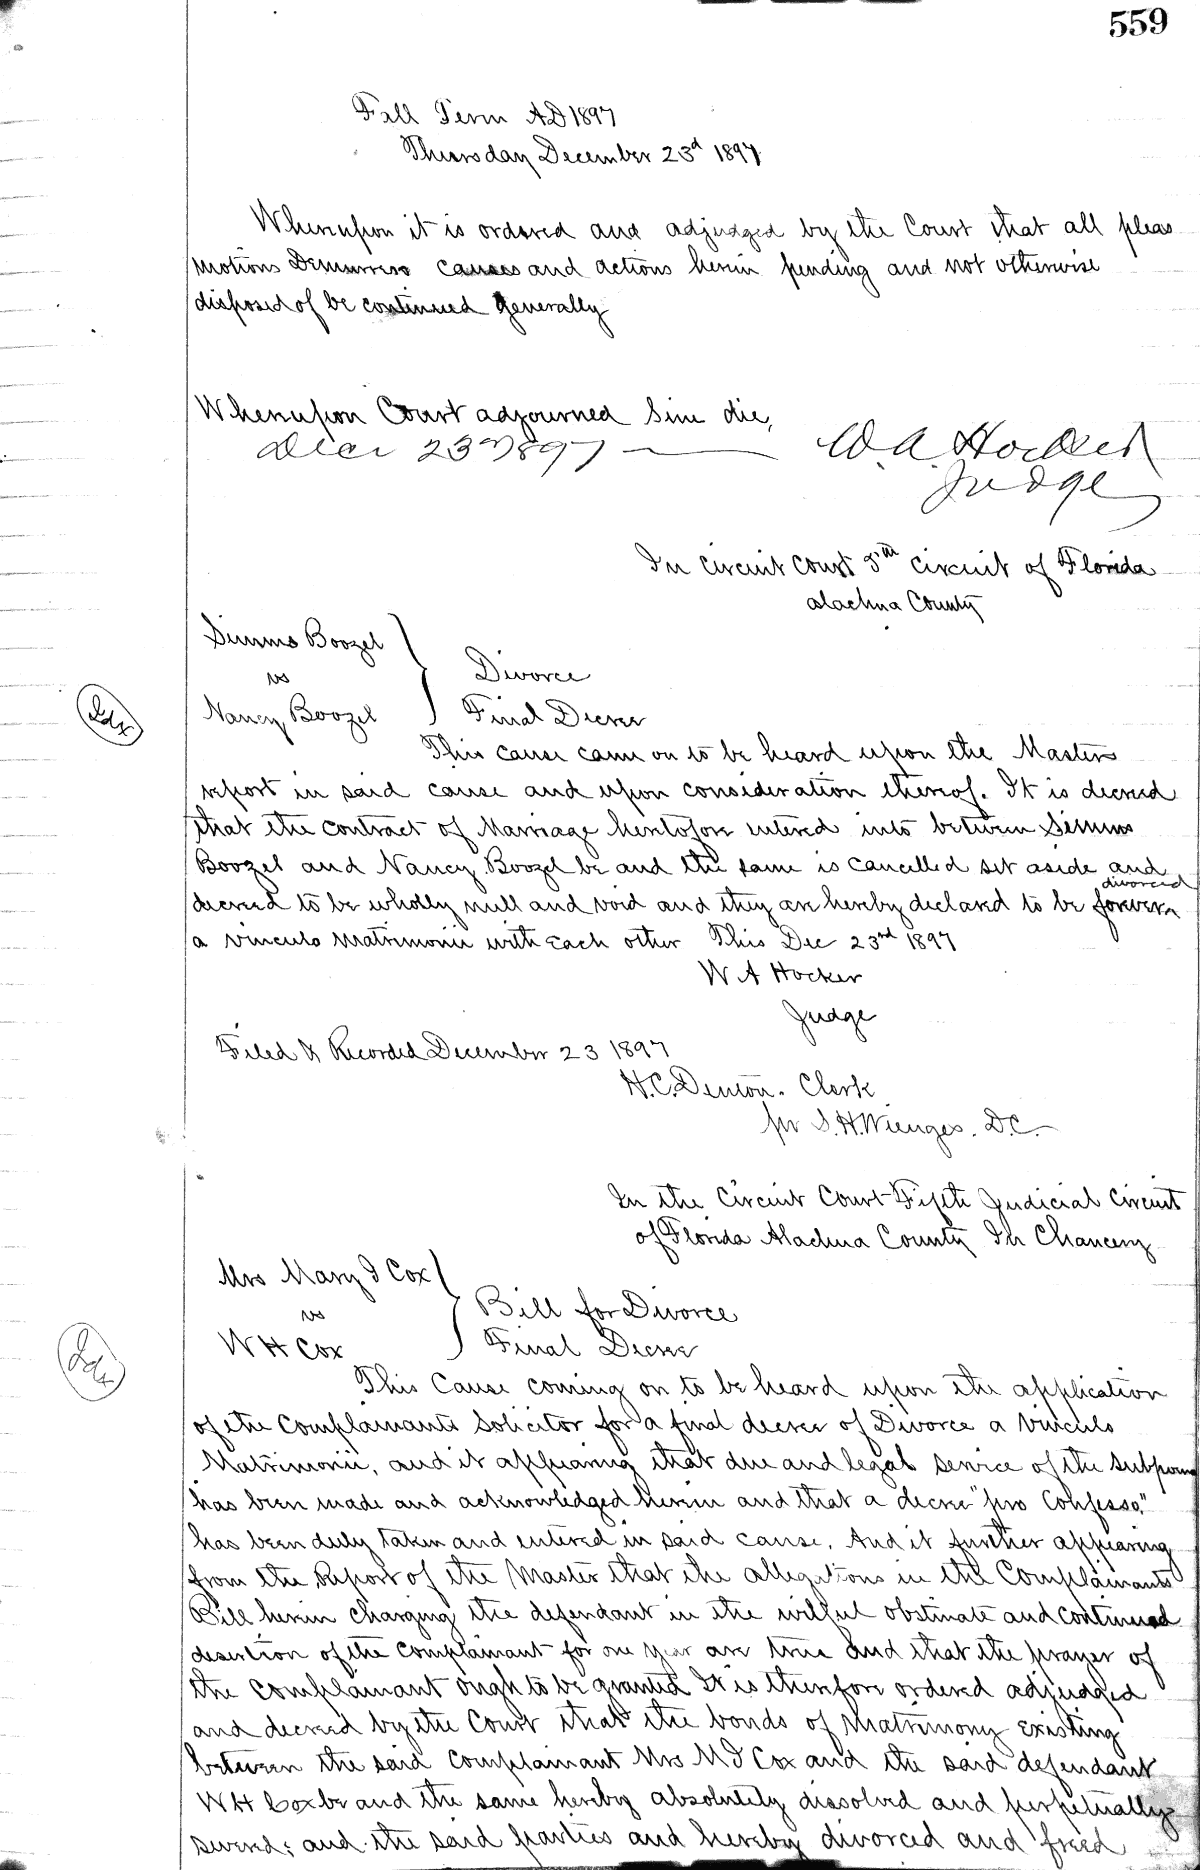 559
Fall Term AD 1897
Thursday December 23d 1897
Whereupon it is ordered and adjudged by the Court that all pleas
Motions Demurrers causes and actions herein pending and not otherwise
disposed of be continued generally
Whereupon Court adjourned Sine die,
Dec 23rd 1897 — W. A. Hocker
Judge
In Circuit Court 5th Circuit of Florida
Alachua County
Simms Boozel
vs
Nancy Boozel
Divorce
Final Decree
Idx
This cause came on to be heard upon the Masters
report in said cause and upon consideration thereof. It is decreed
that the contract of Marriage heretofore entered into between Simms
Boozel and Nancy Boozel be and the same is cancelled set aside and
decreed to be wholly null and void and they are hereby declared to be forever divorced
a vinculo Matrimonii with each other This Dec 23rd 1897
W A Hocker
Judge
Filed & Recorded December 23 1897
H.C. Denton. Clerk
per S.H. Wienges. D.C.
In the Circuit Court Fifth Judicial Circuit
of Florida Alachua County In Chancery
Mrs Mary I Cox
vs
W H Cox
Bill for Divorce
Final Decree
Idx
This Cause coming on to be heard upon the application
of the Complainants Solicitor for a final decree of Divorce a Vinculo
Matrimonii, and it appearing that due and legal service of the subpoena
has been made and acknowledged herein and that a decree "pro Confesso"
has been duly taken and entered in said cause. And it further appearing
from the Report of the Master that the allegations in the Complainants
Bill herein charging the defendant in the wilful obstinate and continued
desertion of the Complainant for one year are true and that the prayer of
the Complainant ought to be granted It is therefore ordered adjudged
and decreed by the Court that the bonds of Matrimony existing
between the said Complainant Mrs M I Cox and the said defendant
W H Cox be and the same hereby absolutely dissolved and perpetually
severed; and the said parties and hereby divorced and freed